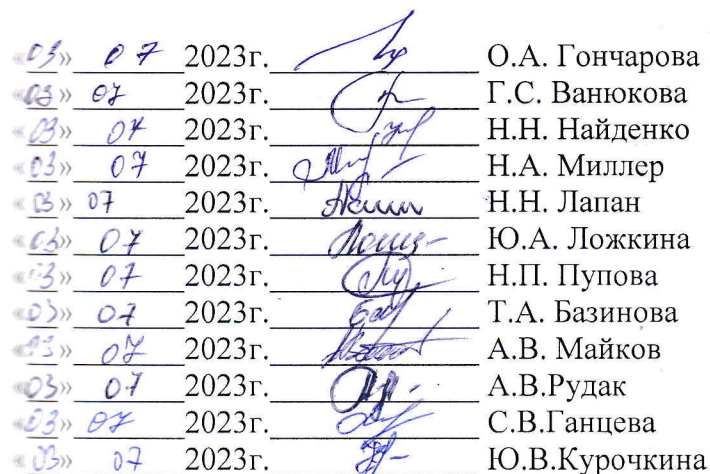 «03» 07 2023г. О.А. Гончарова
«03» 07 2023г. Г.С. Ванюкова
«03» 07 2023г. Н.Н. Найденко
«03» 07 2023г. Н.А. Миллер
«03» 07 2023г. Н.Н. Лапан
«03» 07 2023г. Ю.А. Ложкина
«03» 07 2023г. Н.П. Пупова
«03» 07 2023г. Т.А. Базинова
«03» 07 2023г. А.В. Майков
«03» 07 2023г. А.В.Рудак
«03» 07 2023г. С.В.Ганцева
«03» 07 2023г. Ю.В.Курочкина